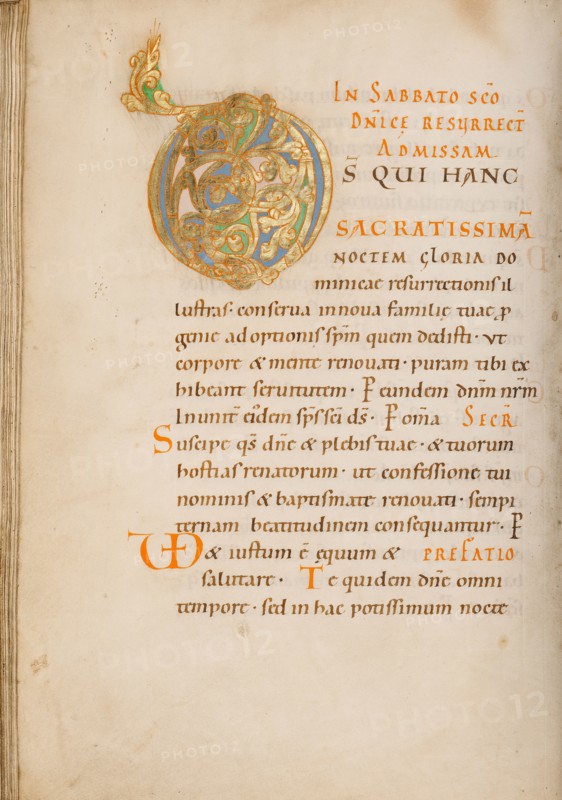 IN SABBATO SC̄O
DN̄ICE RESURRECT̄
ADMISSAM
D̄S QUI HANC
SACRATISSIMĀ
NOCTEM GLORIA DO
minicae resurrectionis il
lustras· conserua in noua familię tuae ꝓ
genie adoptionis sp̄m quem dedisti· ut
corpore & mente renouati· puram tibi ex
hibeant seruitutem· P eundem dn̄m nr̄m
In unit̄ eiđem sp̄s sc̄i d̄s· P om̄a SECR̄
Suscipe q̄s dn̄e & plebis tuae· & tuorum
hostias renatorum· ut confessione tui
nominis & baptismate renouati· sempi
ternam beatitudinem consequantur· P
VD & iustum ē ęquum & PREFATIO
salutare· Te quidem dn̄e omni
tempore· sed in hac potissimum nocte
PHOTO12